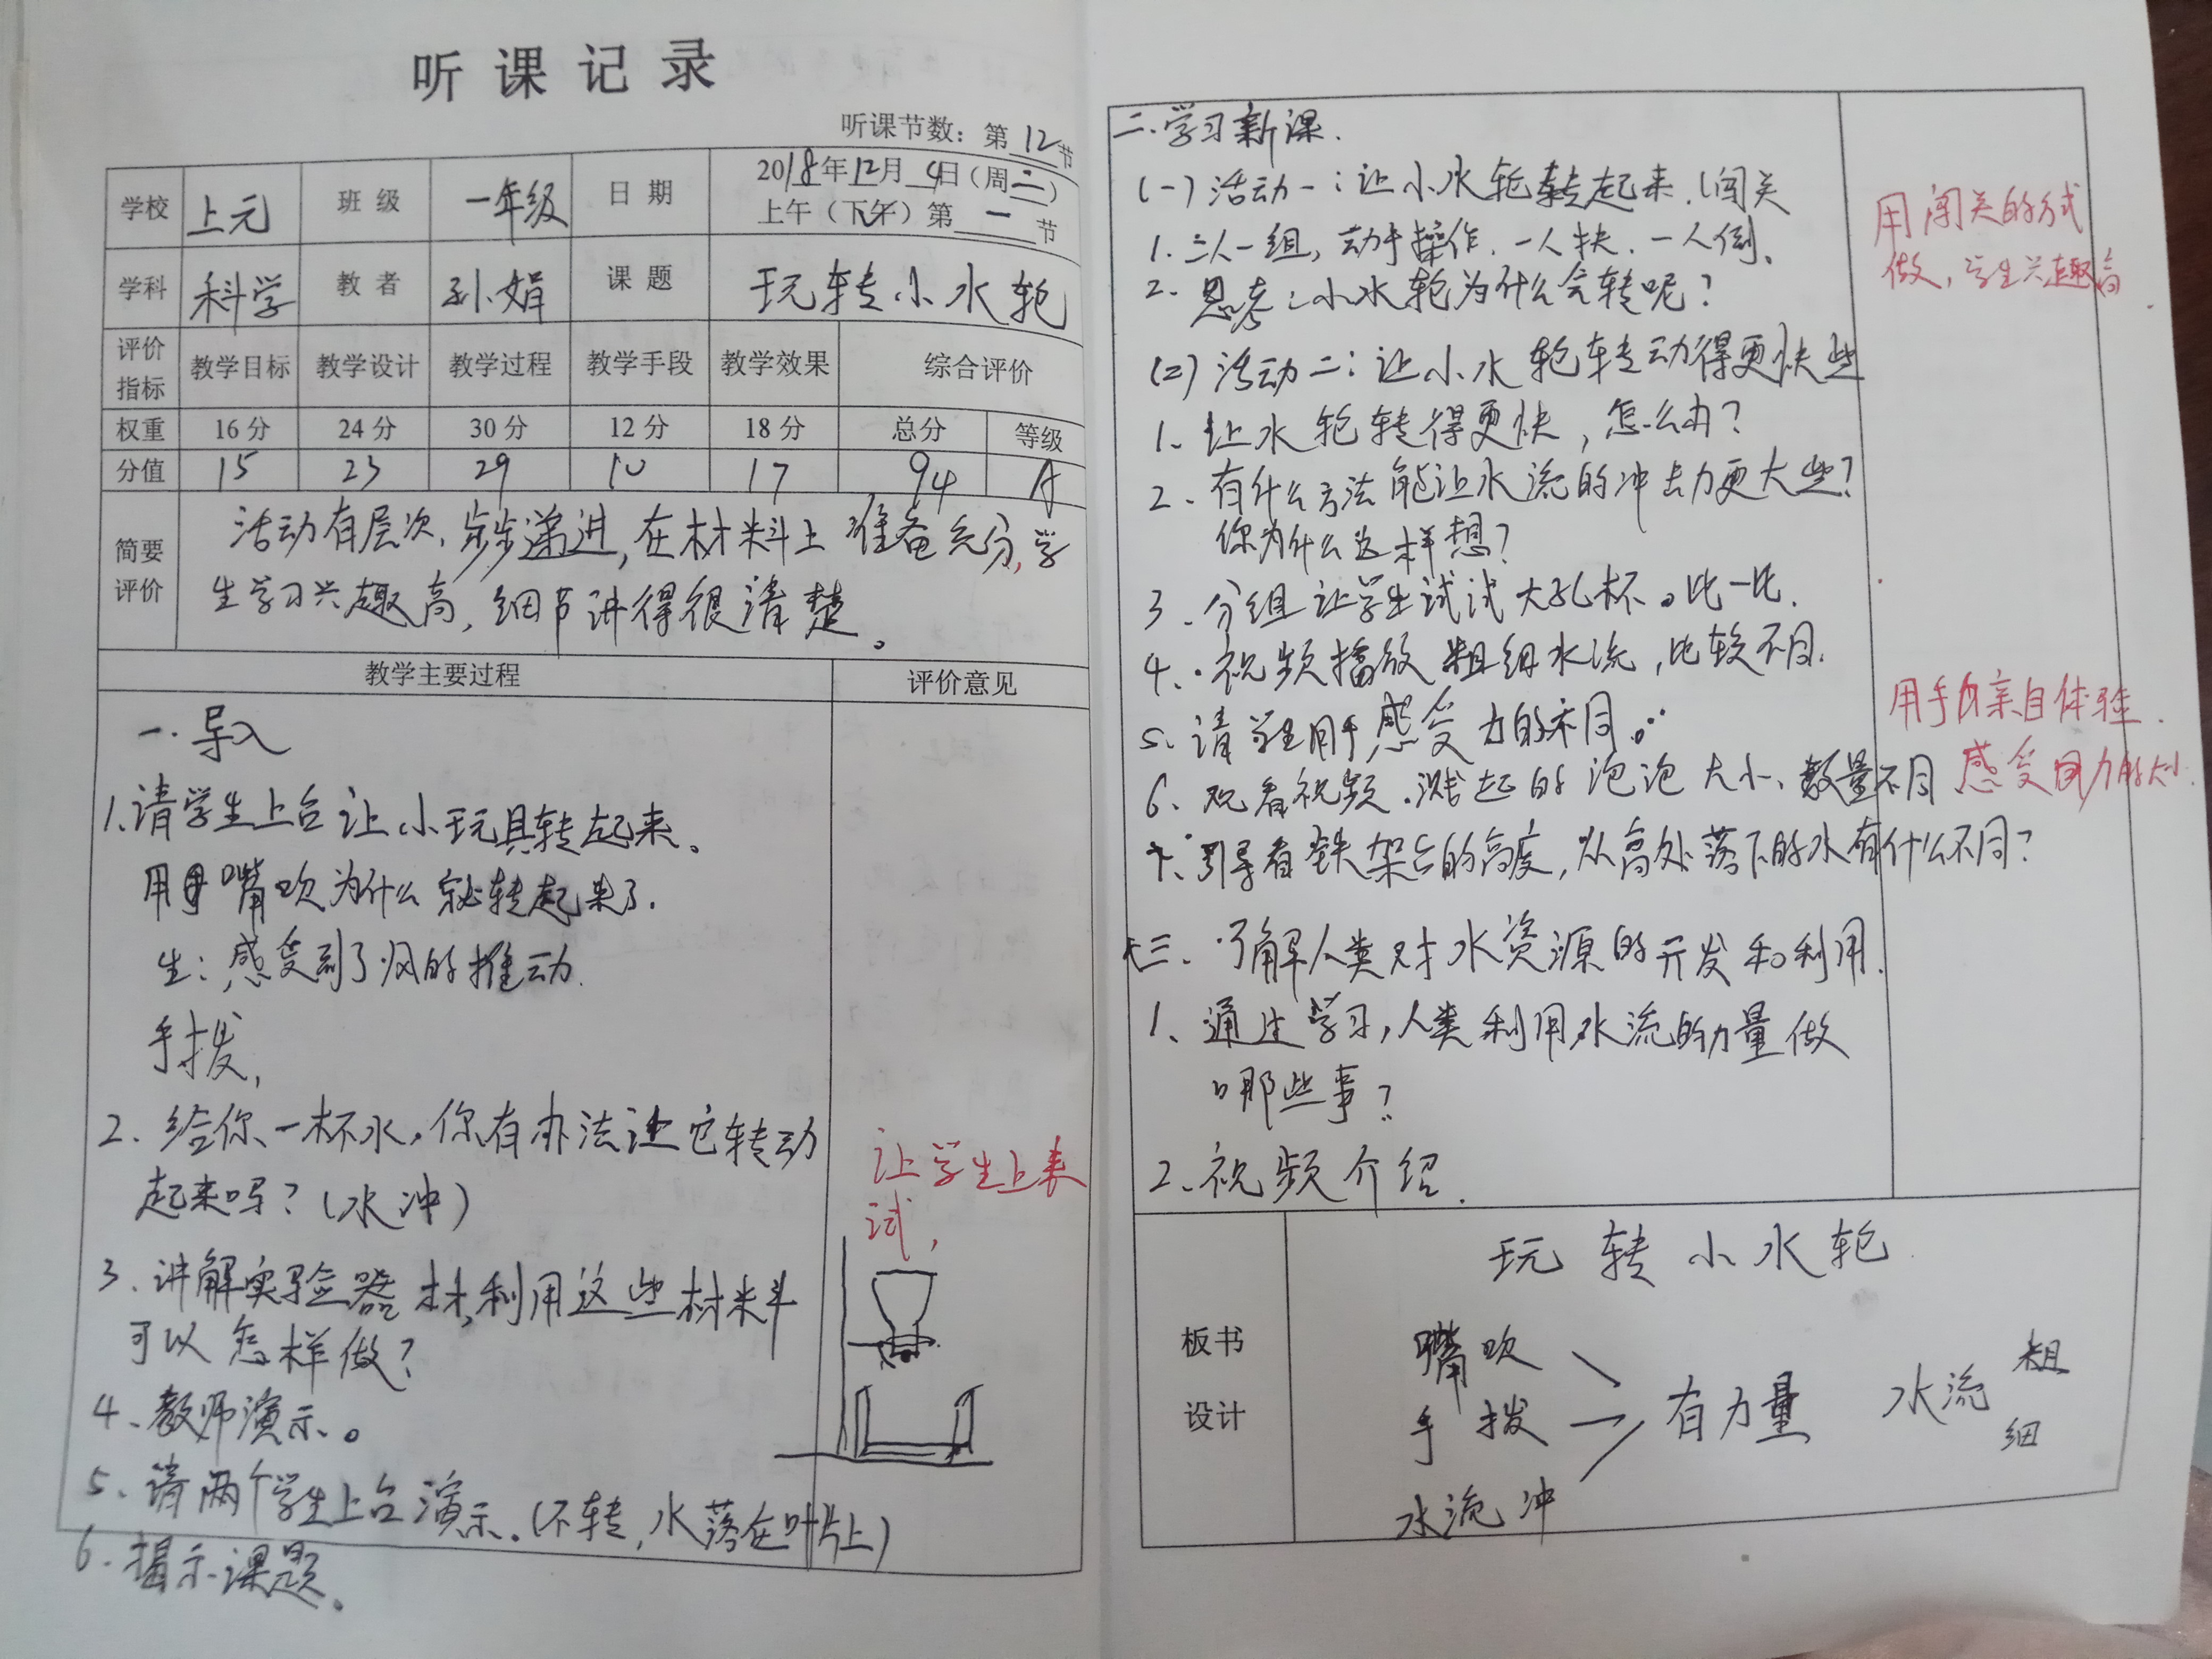 听课记录
听课节数：第12节
学校 上元 班级 一年级 日期 2018年12月4日（周二）
上午（下午）第一节
学科 科学 教者 孙娟 课题 玩转小水轮
评价指标 教学目标 教学设计 教学过程 教学手段 教学效果 综合评价
权重 16分 24分 30分 12分 18分 总分 等级
分值 15 23 29 10 17 94 A
简要评价
活动有层次，步步递进，在材料上准备充分，学
生学习兴趣高，细节讲得很清楚。
教学主要过程 评价意见
一.导入
1.请学生上台让小玩具转起来。
用嘴吹为什么就转起来了.
生：感受到了风的推动.
手拨，
2、给你一杯水，你有办法让它转动
起来吗？（水冲）
让学生上来
试，
3、讲解实验器材，利用这些材料
可以怎样做？
4、教师演示。
5、请两个学生上台演示。（不转，水落在叶片上）
6.揭示课题。
二.学习新课.
(一)活动一：让小水轮转起来.（闯关
1.二人一组，动手操作.一人扶.一人倒.
2.思考：小水轮为什么会转呢？
用闯关的方式
做，学生兴趣高.
(二)活动二：让小水轮转动得更快些
1、让水轮转得更快，怎么办？
2、有什么方法能让水流的冲击力更大些？
你为什么这样想？
3、分组让学生试试大孔杯。比一比.
4、视频播放粗细水流，比较不同.
5、请学生用手感受力的不同。
用手亲自体验.
感受力的大小.
6、观看视频.溅起的泡泡大小、数量不同
7、引导看铁架台的高度，从高处落下的水有什么不同？
三、了解人类对水资源的开发和利用.
1、通过学习，人类利用水流的力量做
哪些事？
2、视频介绍.
板书设计
玩转小水轮
嘴吹
手拨 有力量 水流 粗 细
水流冲